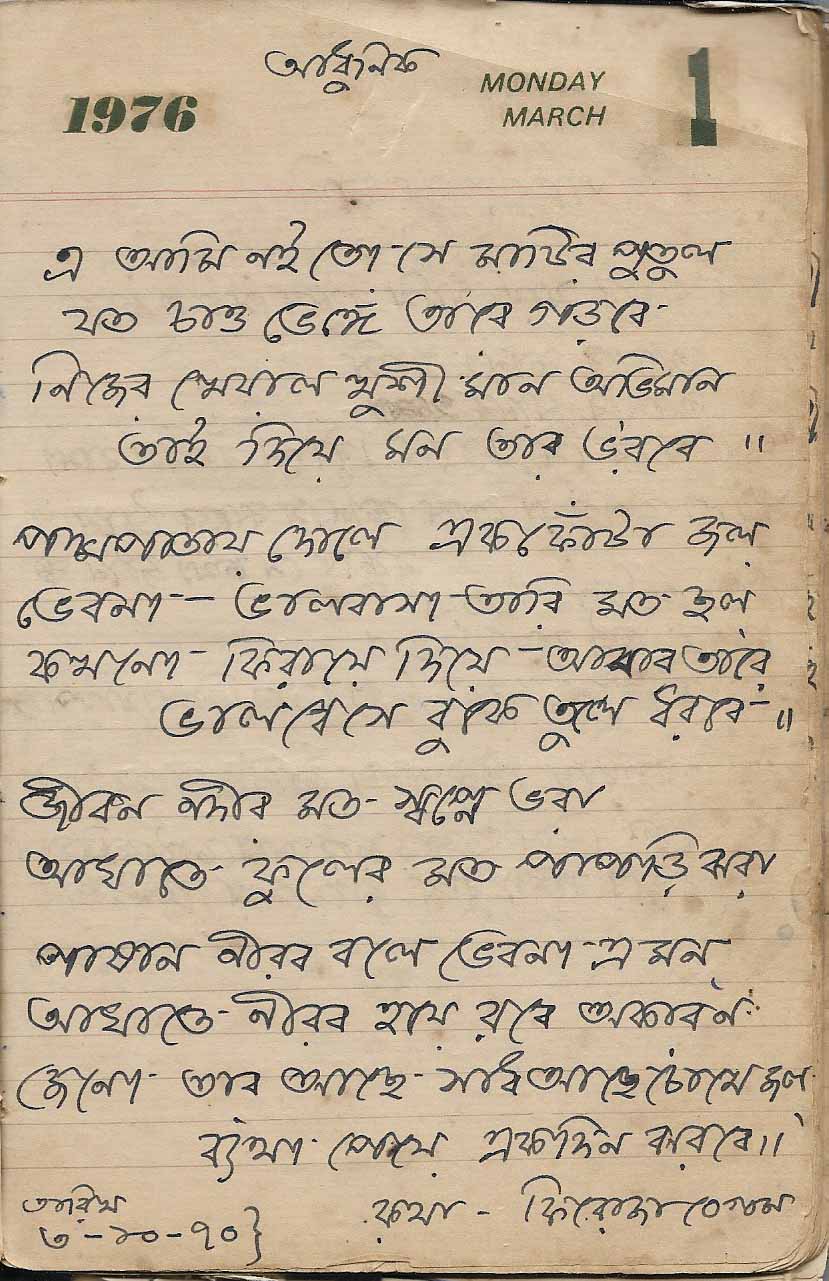 আধুনিক
1976 MONDAY MARCH 1
এ আমি নই তো সে মাটির পুতুল
যত চাও ভেঙ্গে তারে গড়বে
নিজের খেয়াল খুশী মান অভিমান
তাই দিয়ে মন তার ভরবে ॥
পদ্মপাতায় দোলে একফোঁটা জল
ভেবনা — ভালবাসা তারি মত
কখনো ফিরায়ে দিয়ে আবার তারে
ভালবেসে বুকে তুলে ধরবে ॥
জীবন নদীর মত স্বপ্নে ভরা
আঘাতে ফুলের মত পাপড়ি ঝরা
পাষান নীরব বলে ভেবনা এ মন
আঘাতে নীরব হয়ে রবে অকারন
জেনো তার আছে সাধ আছে চোখে জল
ব্যথা পেয়ে একদিন ঝরবে ॥
তারিখ
৩ - ১০ - ৭০ }
কথা - ফিরোজা বেগম